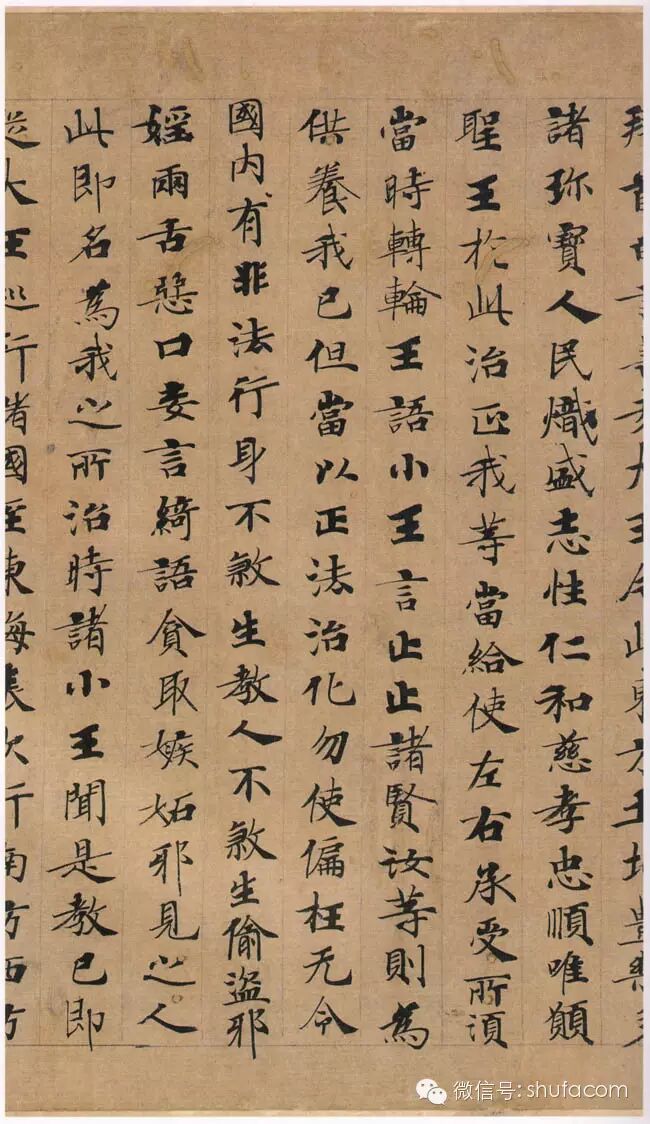 大王今此東方土地豊樂多
諸珎寶人民熾盛志性仁和慈孝忠順唯願
聖王於此治正我等當給使左右承受所須
當時轉輪王語小王言止止諸賢汝等則為
供養我已但當以正法治化勿使偏枉无令
國內有非法行身不煞生教人不煞生偷盜邪
婬兩舌惡口妄言綺語貪取嫉妬邪見之人
此即名為我之所治時諸小王聞是教已即
從大王巡行諸國至東海表次行南方西方
微信号: shufacom